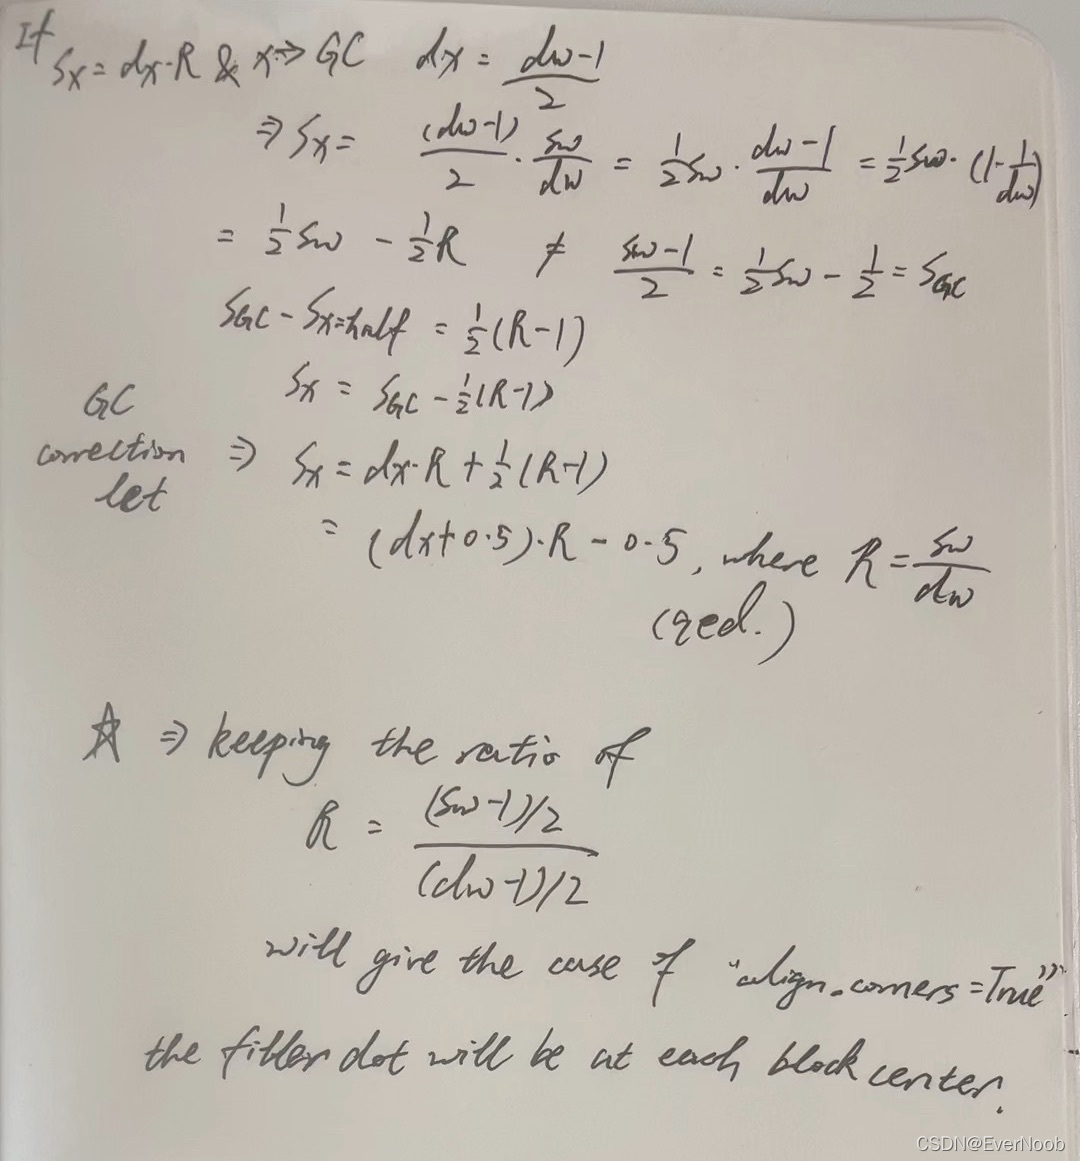 If Sx = dx·R & x⇒GC dx = (dw-1)/2
⇒ Sx = (dw-1)/2 · sw/dw = 1/2 sw · (dw-1)/dw = 1/2 sw · (1-1/dw)
= 1/2 sw - 1/2 R ≠ (sw-1)/2 = 1/2 sw - 1/2 = SGC
SGC - Sx=half = 1/2(R-1)
Sx = SGC - 1/2(R-1)
GC
correction ⇒ Sx = dx·R + 1/2(R-1)
let
= (dx+0.5)·R - 0.5, where R = sw/dw
(qed.)
☆ ⇒ keeping the ratio of
R = ((sw-1)/2)/((dw-1)/2)
will give the case of "align_corners=True"
the filler dot will be at each block center.
CSDN@EverNoob